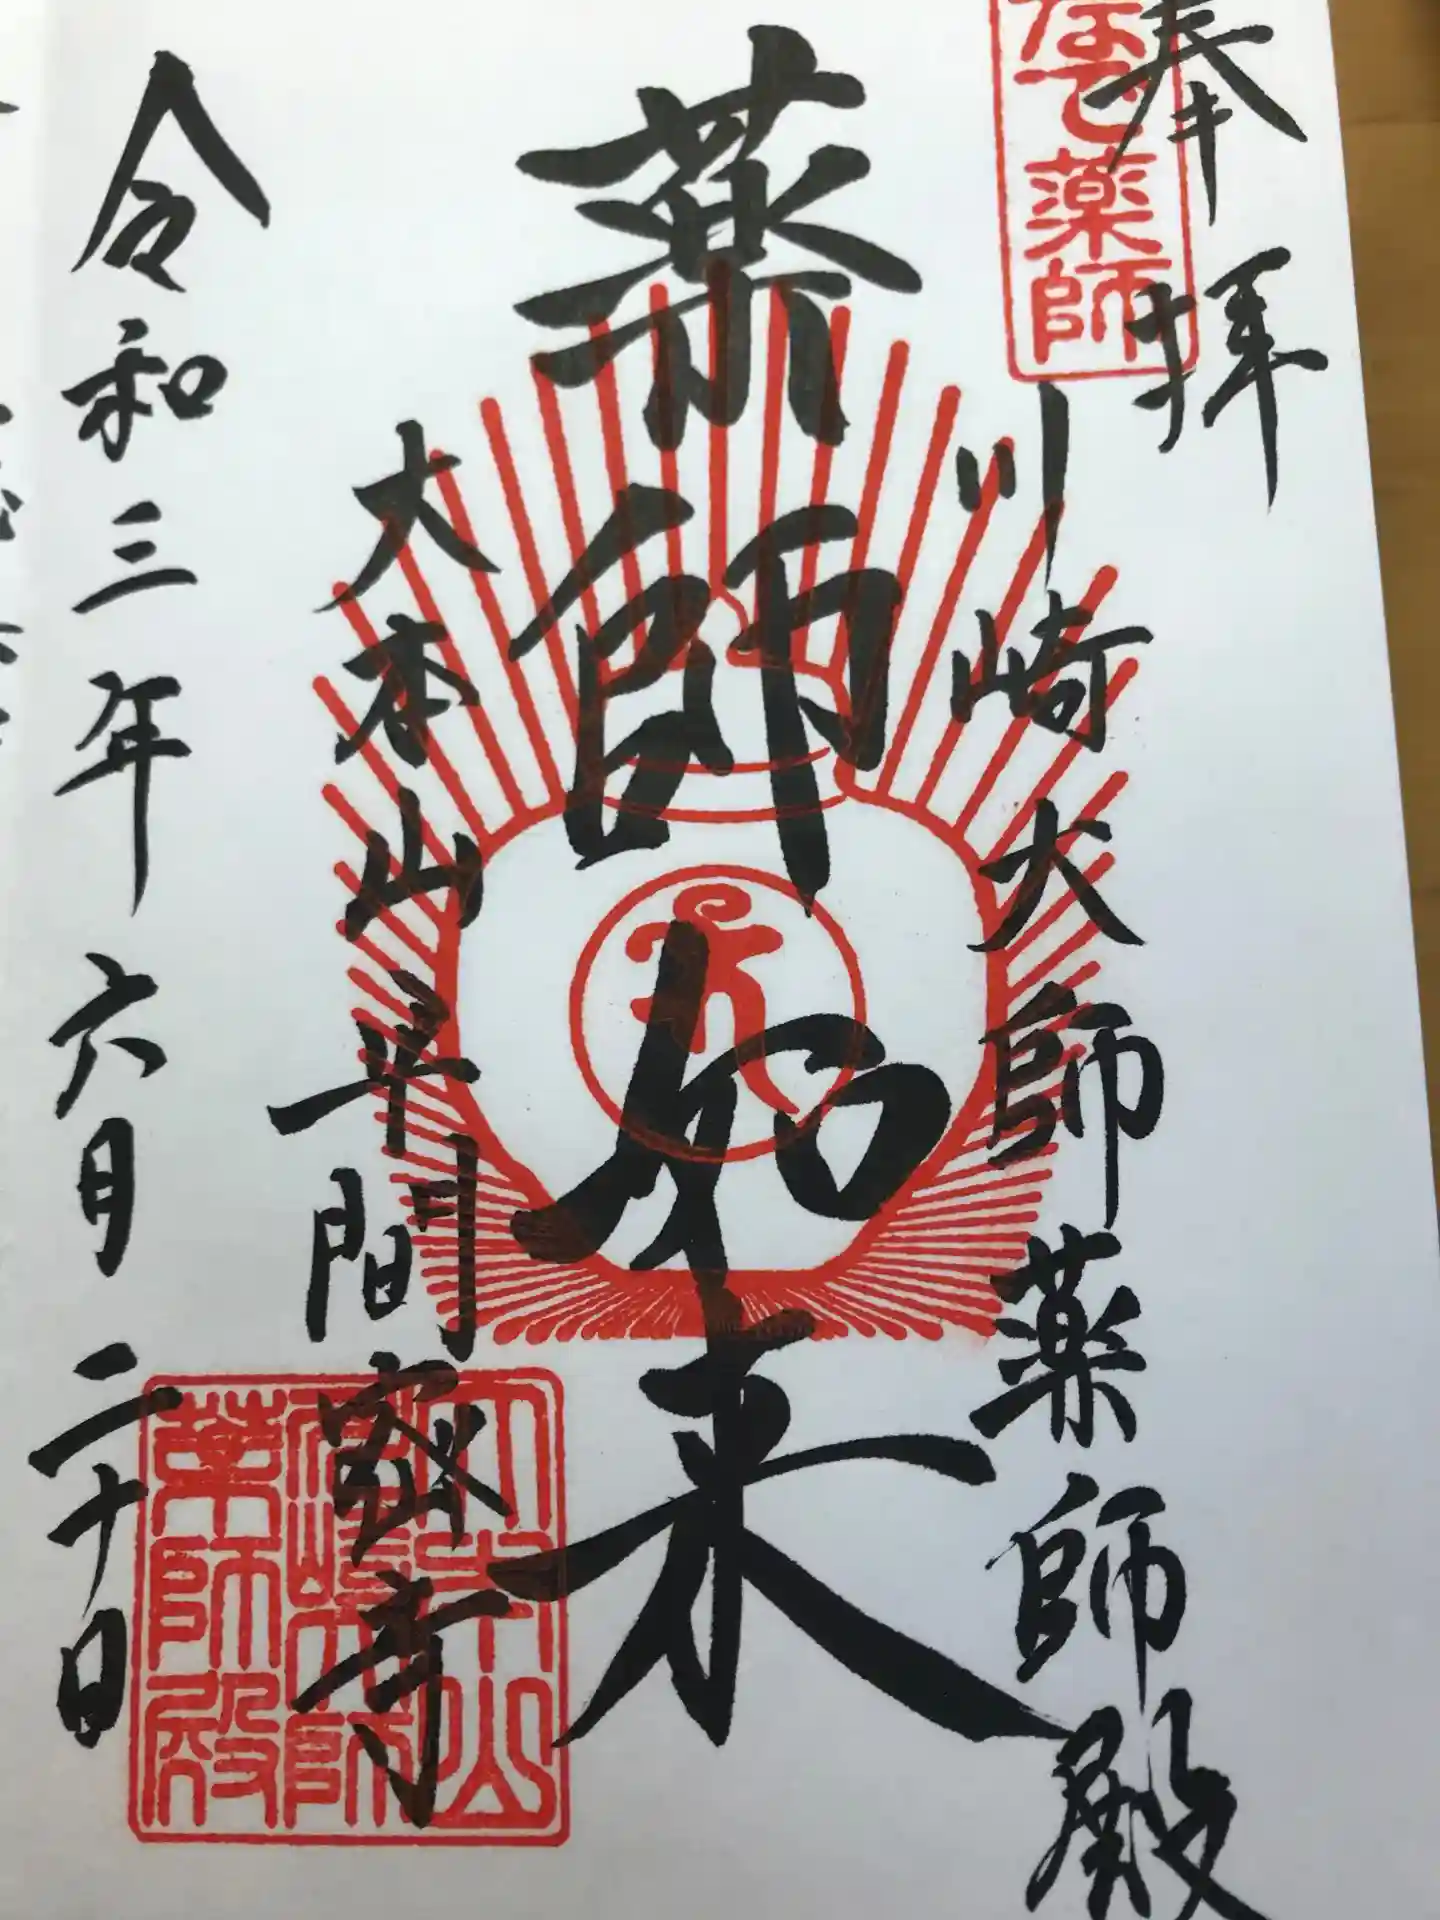 奉拝
なで薬師
川崎大師薬師殿
薬師如来
大本山平間寺
大本山
川崎大師
薬師殿
令和三年六月二十日